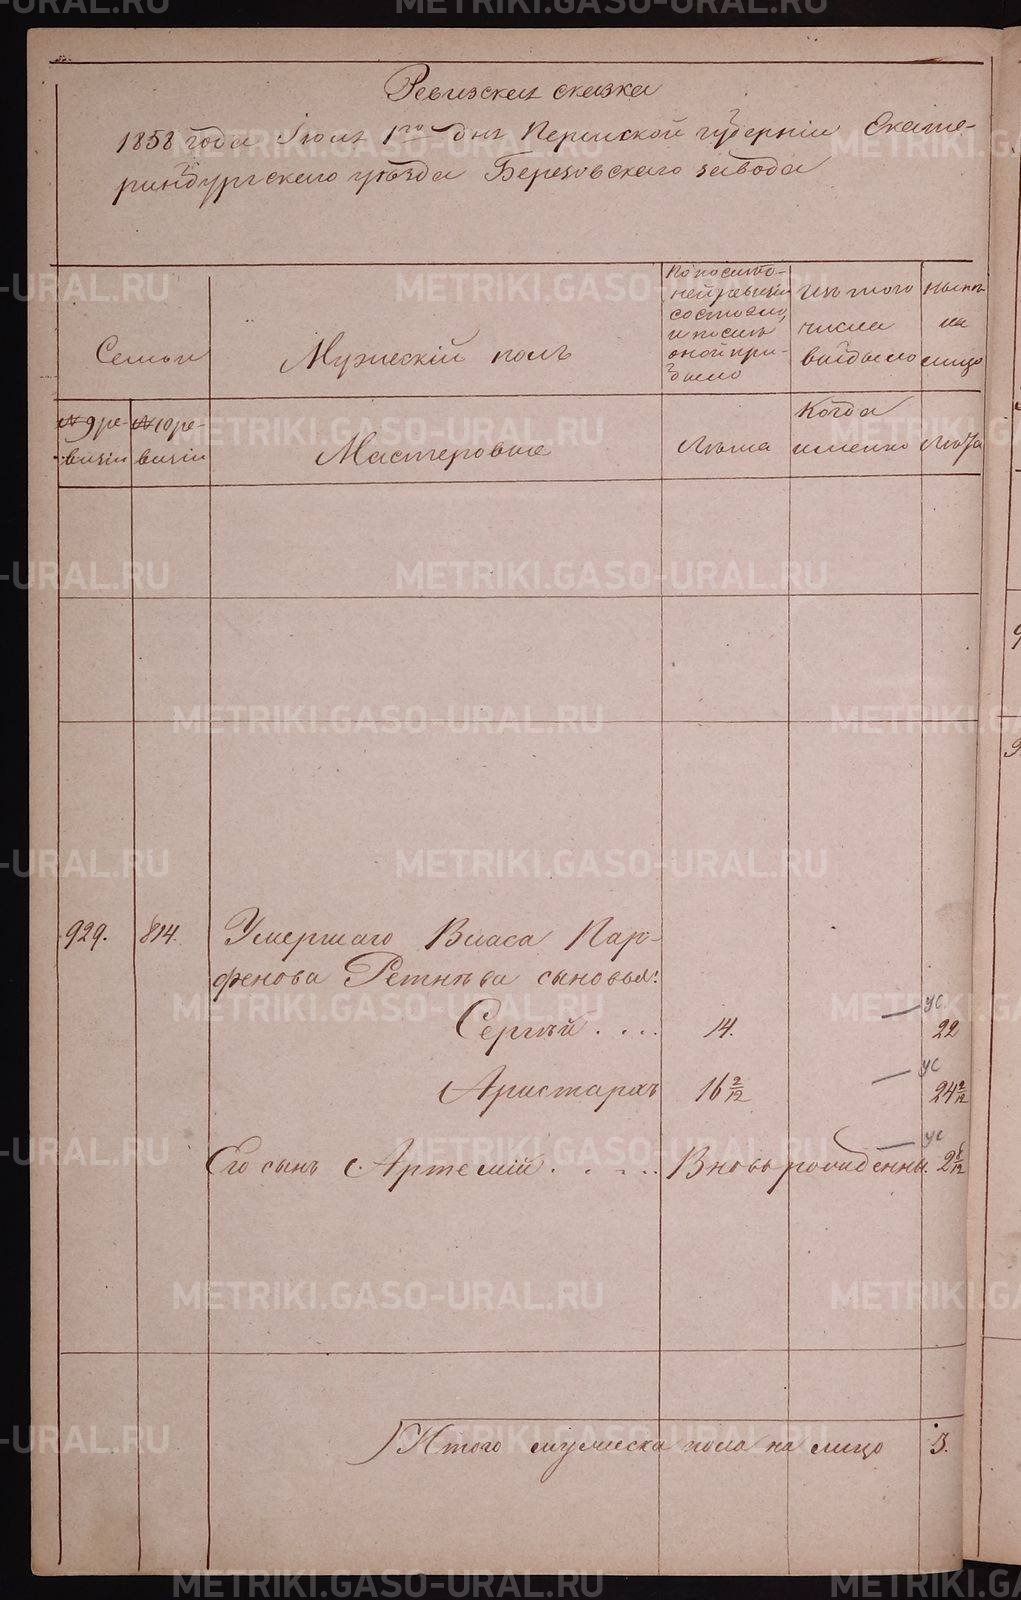 Ревизская сказка
1858 года Іюля 1го дня Пермской губерніи Екате-
ринбургскаго уѣзда Березовскаго завода
Семьи
Мужескій полъ
По послѣд-
ней ревизіи
состояло,
и послѣ
оной при-
было
Изъ того
числа
выбыло
Нынѣ
на
лицо
№ 9 ре-
визіи
№ 10 ре-
визіи
Мастеровые
Лѣта
Когда
именно
Лѣта
929. 814. Умершаго Власа Пар-
фенова Ретнѣва сыновья:
ус
Сергѣй . . . . 14. — 22
ус
Аристархъ 16 2/12 — 24 2/12
ус
Его сынъ Артемій . . . . . Вновь рожденны. 2 6/12
Итого мужеска пола на лицо 3.
METRIKI.GASO-URAL.RU